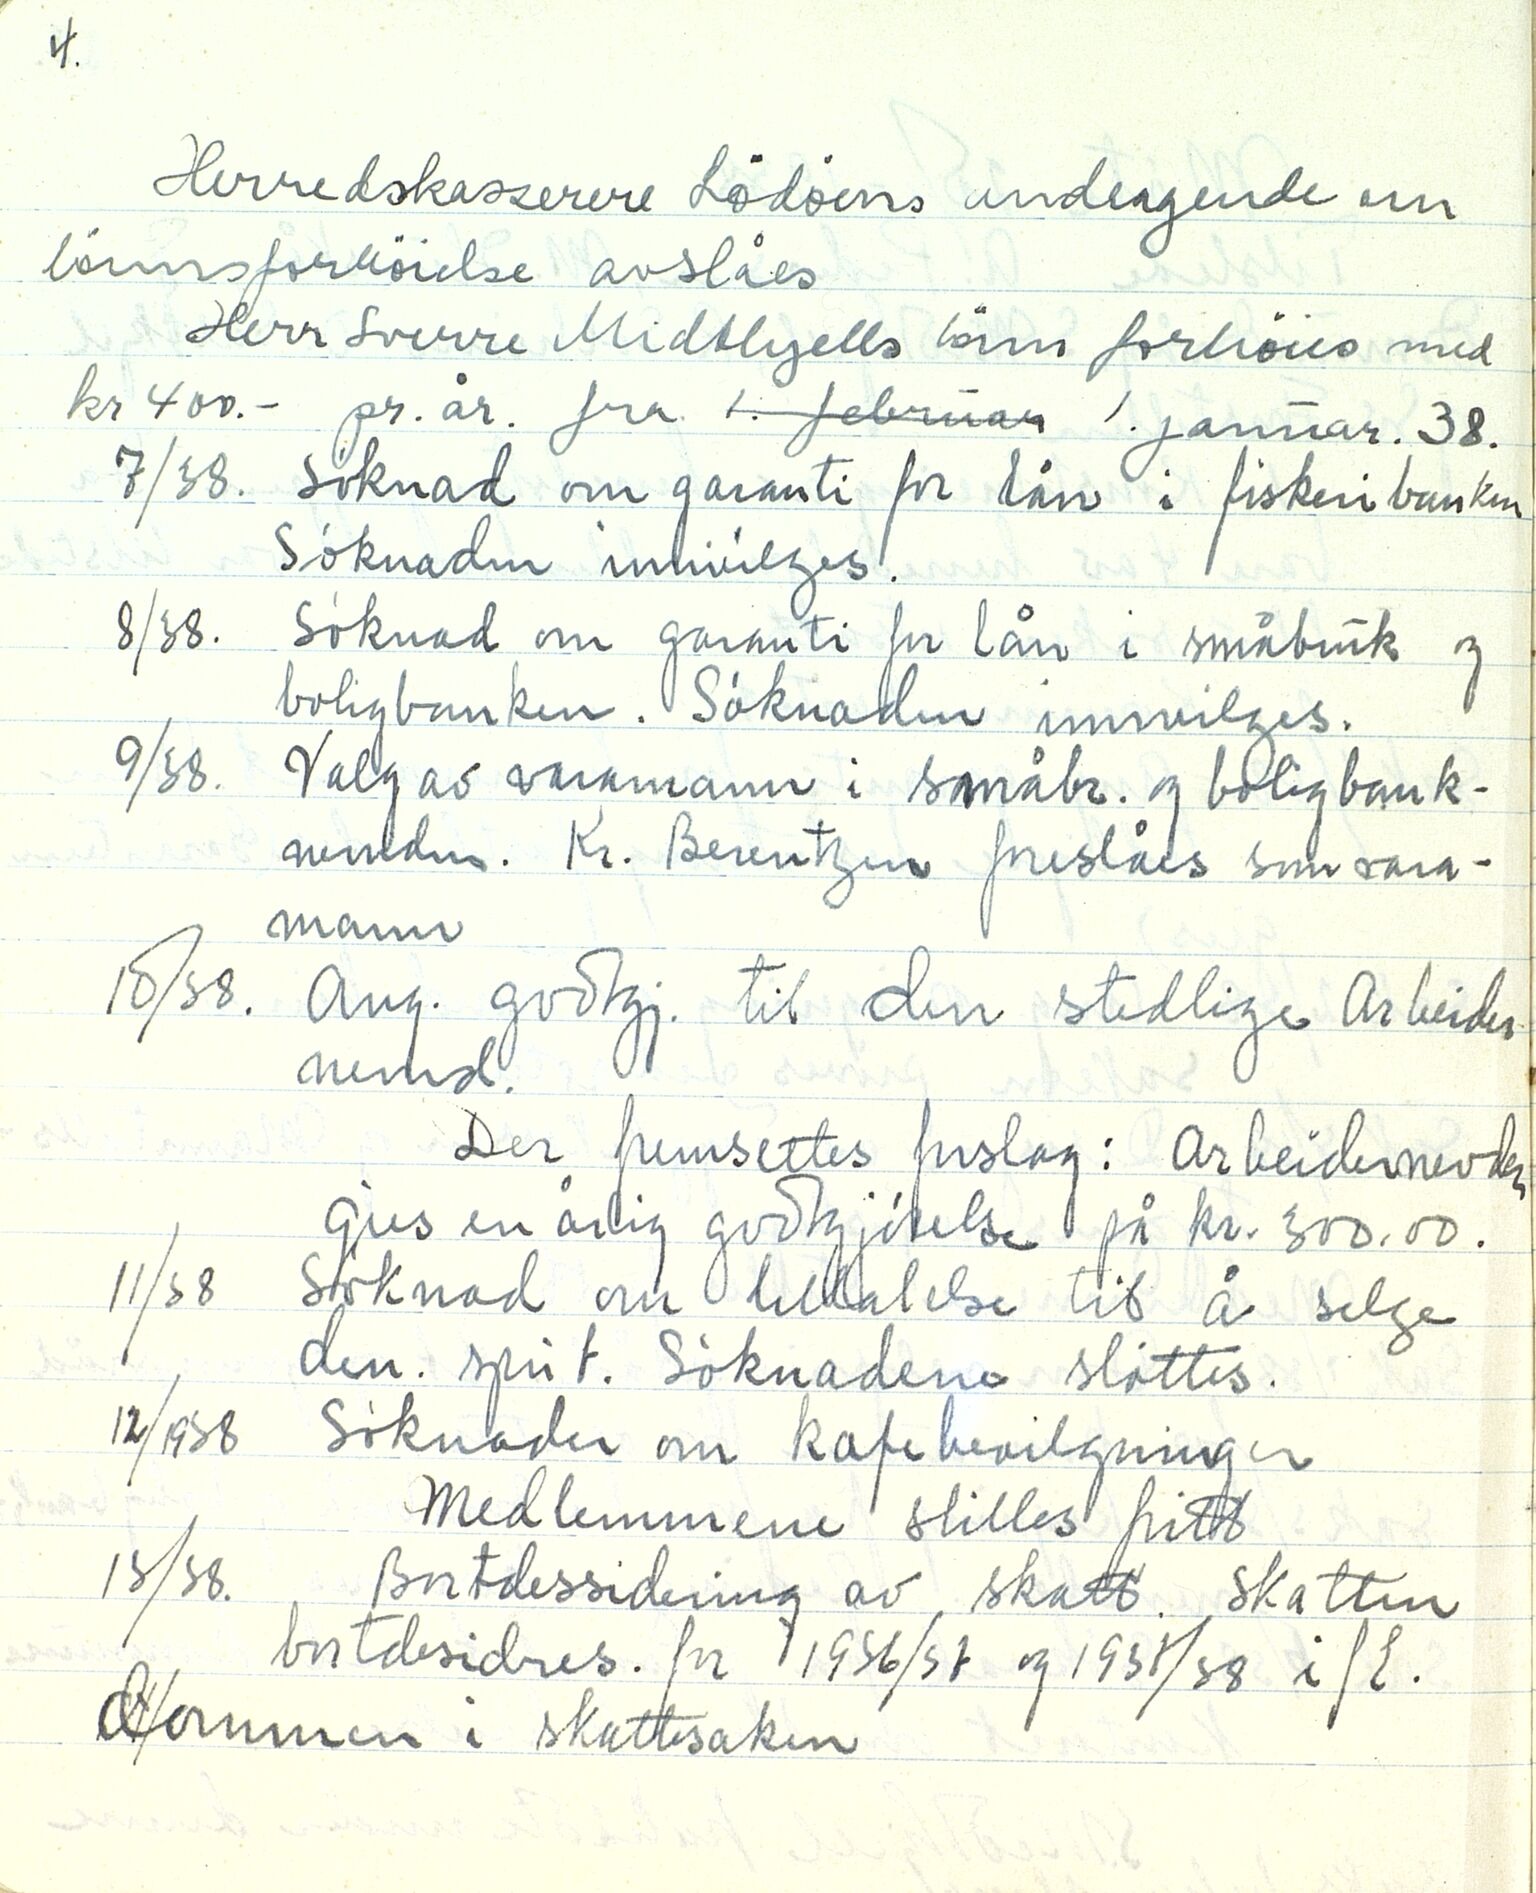 4.
Herredskasserere Lödöens andragende om
lönnsforhöielse avslåes
Herr Sverre Midtkjells lönn forhöies med
kr 400.- pr. år. fra 1. februar 1. januar. 38.
7/38. Söknad om garanti for lån i fiskeribanken
Söknaden innvilges.
8/38. Söknad om garanti for lån i småbruk og
boligbanken. Söknaden innvilges.
9/38. Valg av varamann i småbr. og boligbank-
nemden. Kr. Berentzen foreslåes som vara-
mann
10/38. Ang. godtgj. til den stedlige Arbeider
nemd.
Der fremsettes forslag: Arbeidernevden
gies en årlig godtgjörelse på kr. 300.00.
11/38 Söknad om tillatelse til å selge
den. sprit. Söknadene stöttes.
12/1938 Söknader om kafebevilgninger
Medlemmene stilles fritt
13/38. Bortdessidering av skatt. Skatten
bortdesidres. for 1936/37 og 1937/38 i f
Dommen i skattesaken